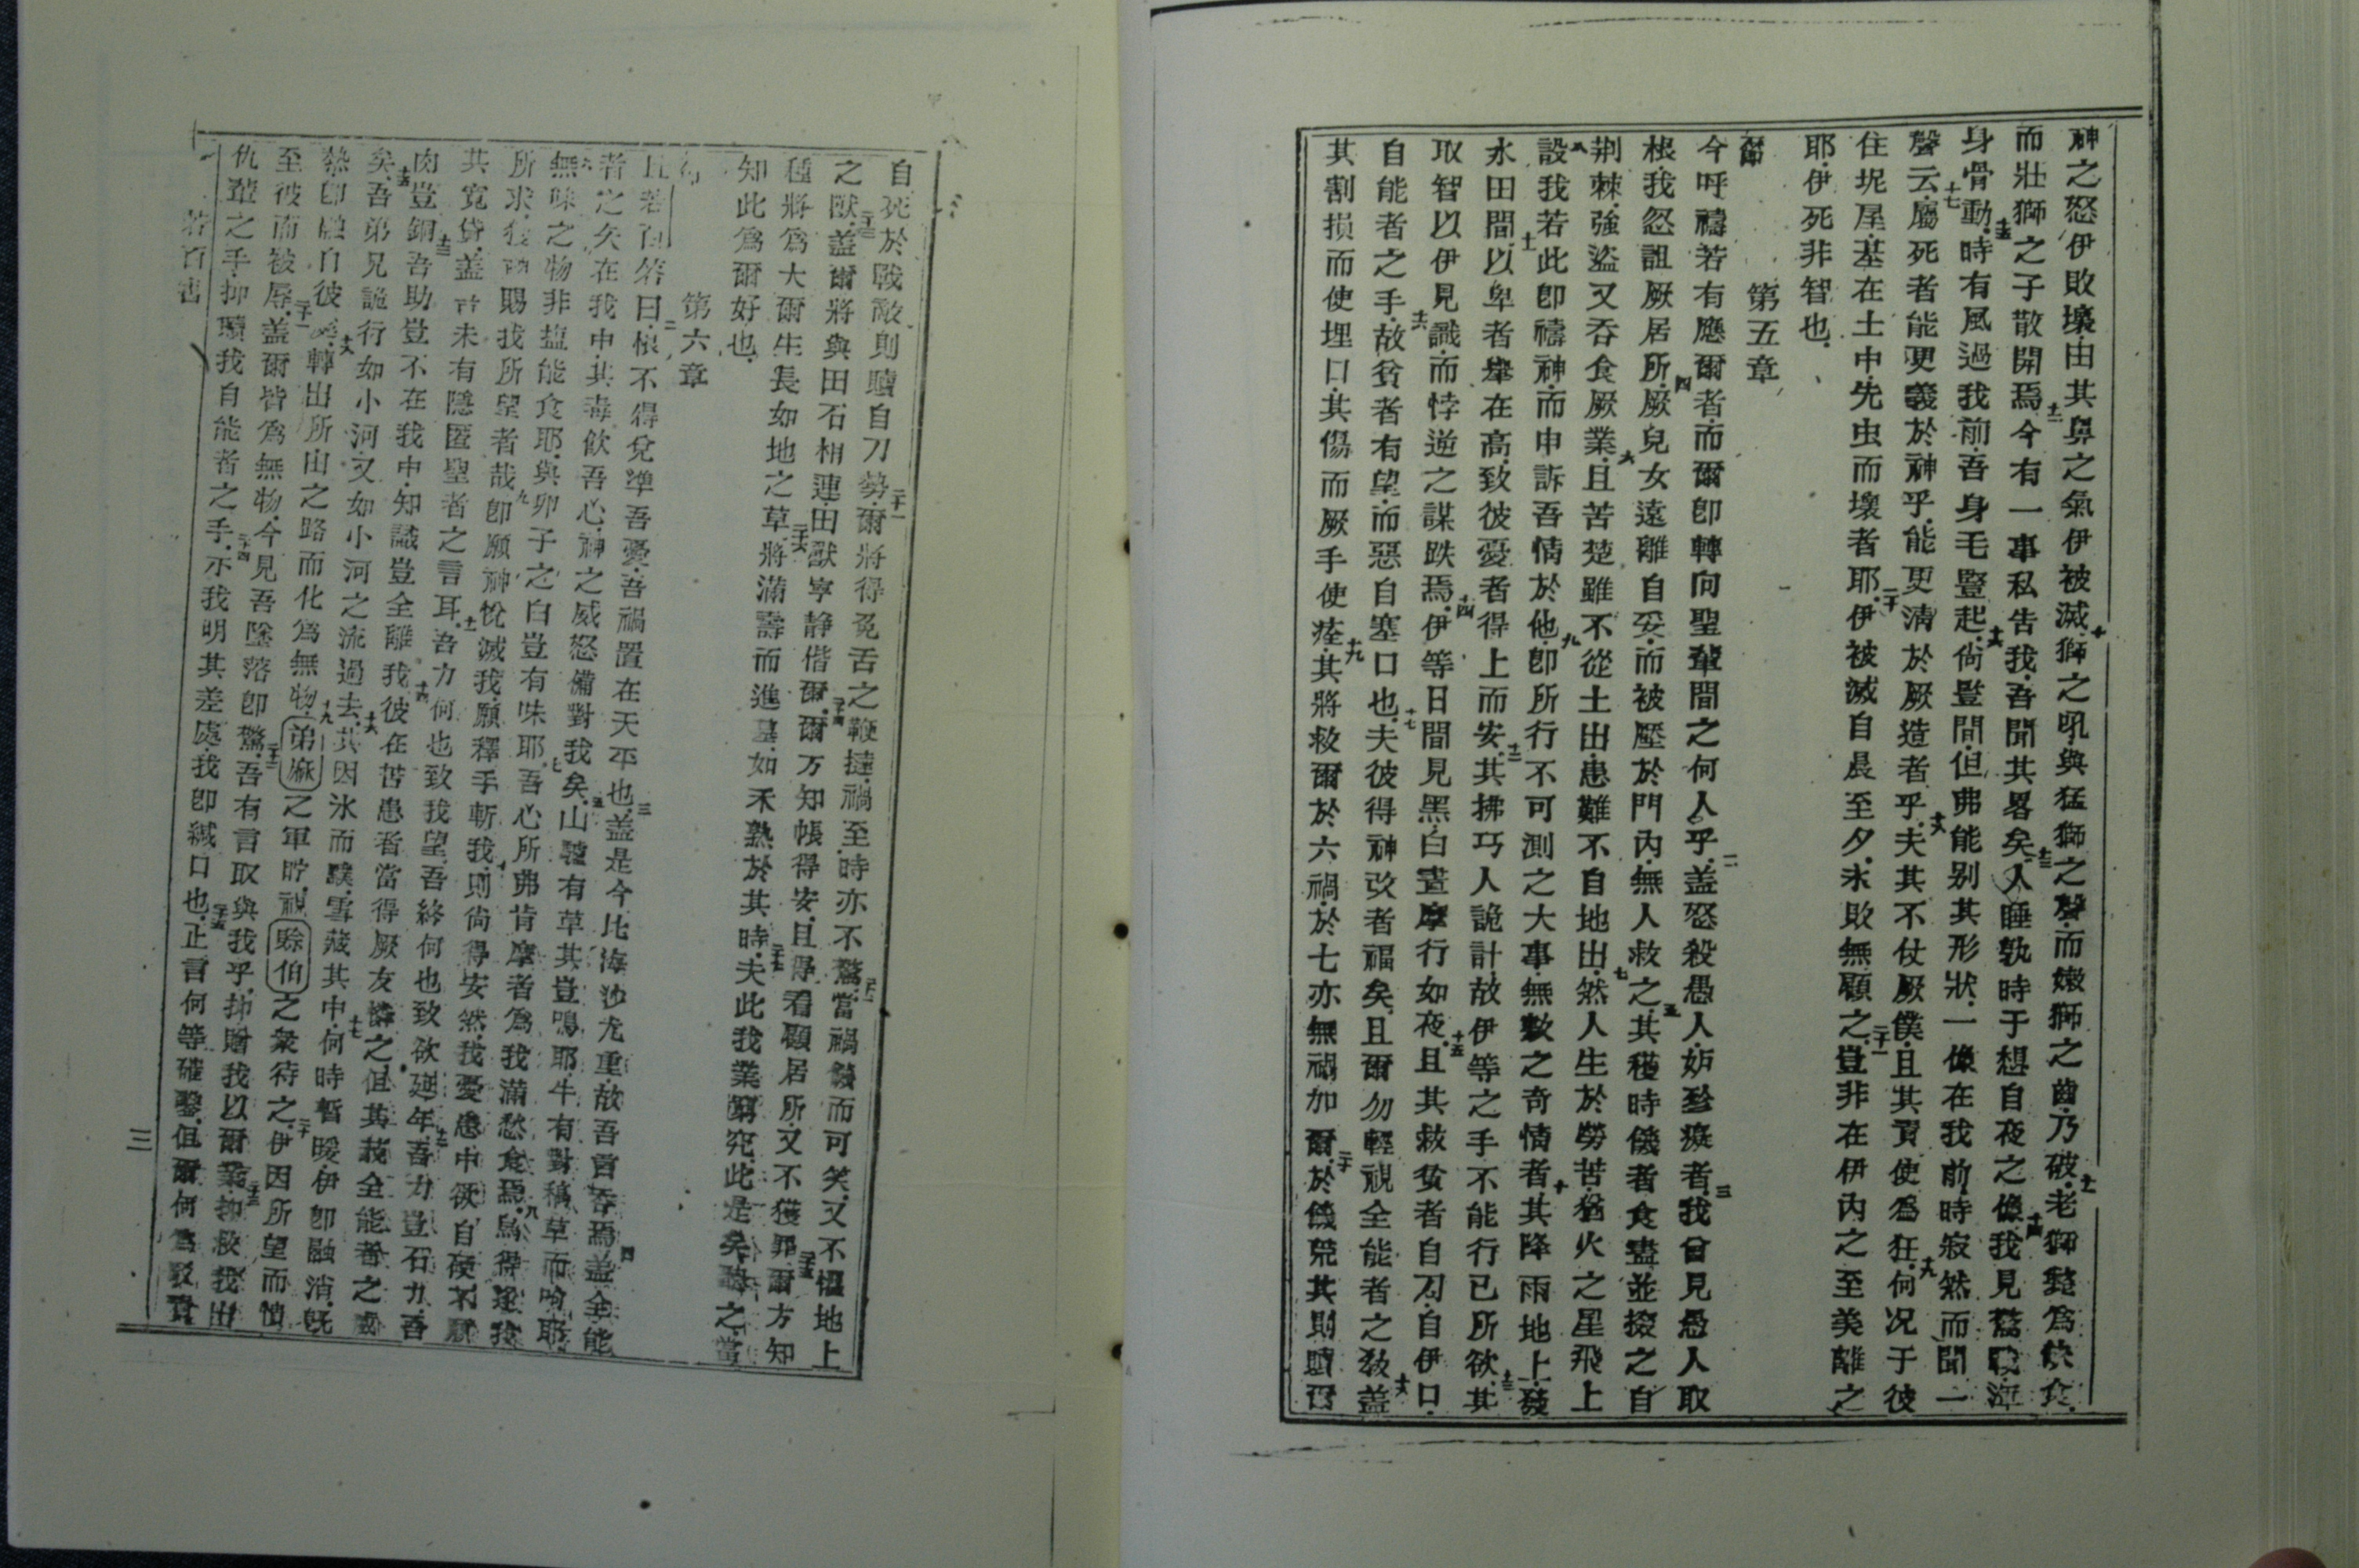 神之怒伊敗壞由其鼻之氣伊被滅十獅之吼與猛獅之聲而嫩獅之齒乃破十一老獅斃爲缺食
而壯獅之子散開焉十二今有一事私告我吾聞其畧矣十三人睡孰時于想自夜之像十四我見驚戰渾
身骨動十五時有風過我前吾身毛豎起十六尚豎間但弗能别其形狀一像在我前時寂然而聞一
聲云十七屬死者能更義於神乎能更清於厥造者乎十八夫其不仗厥僕且其責使爲狂十九何况于彼
住坭屋基在土中先虫而壞者耶二十伊被滅自晨至夕永敗無顧之二十一豈非在伊内之至美離之
耶伊死非智也
第五章
今呼禱若有應爾者而爾卽轉向聖輩間之何人乎二盖怒殺愚人妒殄癡者三我曾見愚人取
根我忽詛厥居所四厥兒女遠離自妥而被壓於門内無人救之五其穫時饑者食盡並撿之自
荆棘強盜又吞食厥業六且苦楚雖不從土出患難不自地出七然人生於勞苦猶火之星飛上
八設我若此卽禱神而申訴吾情於他九卽所行不可測之大事無數之奇情者十其降雨地上發
水田間十一以卑者舉在高致彼憂者得上而安十二其拂巧人詭計故伊等之手不能行已所欲十三其
取智以伊見識而悖逆之謀跌焉十四伊等日間見黑白晝摩行如夜十五且其救貧者自刀自伊口
自能者之手十六故貧者有望而惡自塞口也十七夫彼得神改者福矣且爾勿輕視全能者之教十八盖
其割損而使埋口其傷而厥手使痊十九其將救爾於六禍於七亦無禍加爾二十於饑荒其則贖爾
自死於戰敵則贖自刀勢二十一爾將得免舌之鞭撻禍至時亦不驚二十二當禍饑而可笑又不懼地上
之獸二十三盖爾將與田石相連田獸寧静偕爾二十四爾方知帳得安且得看顧居所又不獲罪二十五爾方知
種將爲大爾生長如地之草二十六將滿壽而進墓如禾熟於其時二十七夫此我業窮究此是矣聽之當
知此爲爾好也
第六章
且若百答曰二恨不得兌準吾憂吾禍置在天平也三盖是今比海沙尤重故吾言吞焉四盖全能
者之矢在我中其毒飲吾心神之威怒備對我矣五山驢有草其豈鳴耶牛有對稿草而吟耶
六無味之物非塩能食耶與卵子之白豈有味耶七吾心所弗肯摩者爲我滿愁食焉八烏得遂我
所求我 賜我所望者哉九卽願神悅滅我願釋手斬我十則尚得安然我憂患中欲自硬不
其寬貸盖吾未有隱匿聖者之言耳十一吾力何也致我望吾終何也致欲延年十二吾力豈石力吾
肉豈銅十三吾助豈不在我中知識豈全離我十四彼在苦患者當得厥友憐之但其 全能者之
矣十五吾弟兄詭行如小河又如小河之流過去十六其因氷而 雪藏其中十七何時暫暖伊卽融消旣
熱卽 自彼 十八轉出所由之路而化爲無物十九弟麻之軍貯視賒伯之衆待之二十伊因所望而愧
至彼而被辱二十一盖爾皆爲無物今見吾墜落卽驚二十二吾有言取與我乎抑贈我以爾業二十三抑救我出
仇 之手抑贖我自能者之手二十四示我明其差處我卽緘口也二十五正言何等確鑿但爾何爲駁責
若百書
三